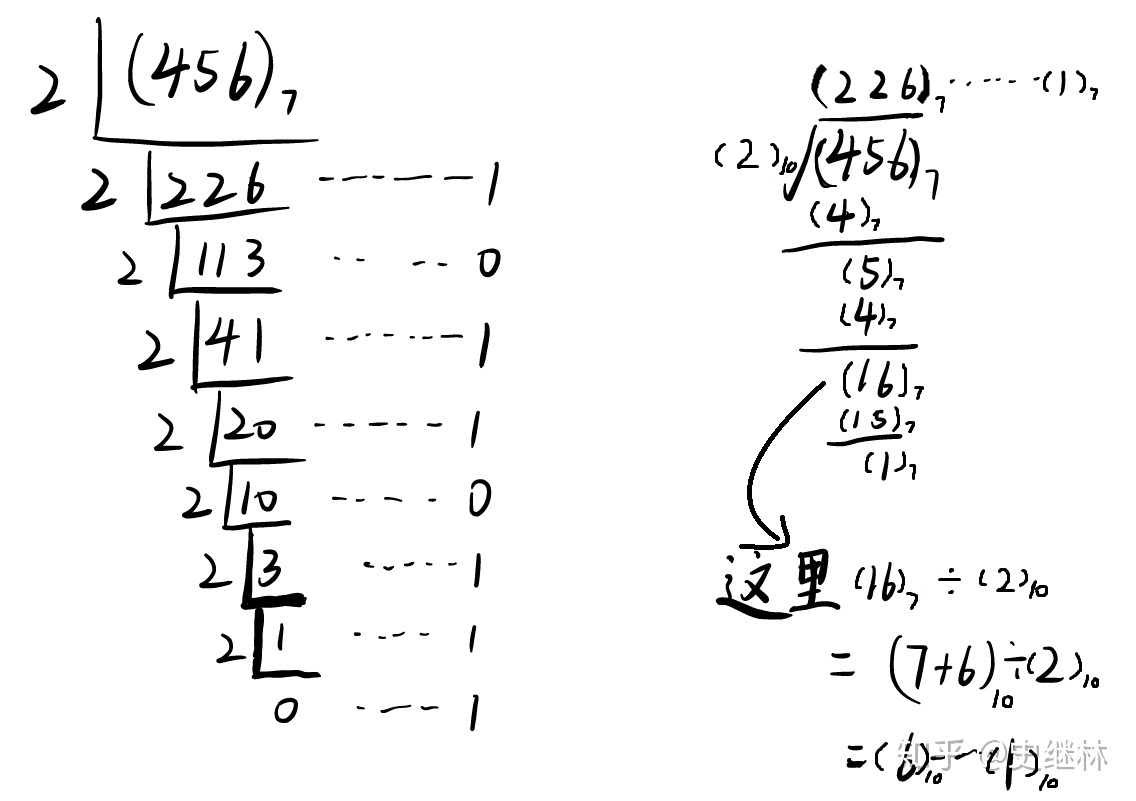 2 (456)₇
2 226 ------- 1
2 113 ·· ·-- 0
2 41 ------- 1
2 20 ------- 1
2 10 ------ 0
2 3 ----- 1
2 1 ---- 1
0 ---- 1
(226)₇ ······ (1)₇
(2)₁₀ (456)₇
(4)₇
(5)₇
(4)₇
(16)₇
(15)₇
(1)₇
这里 (16)₇ ÷ (2)₁₀
= (7+6)₁₀ ÷ (2)₁₀
= (6)₁₀ --- (1)₁₀
知乎 @史继林